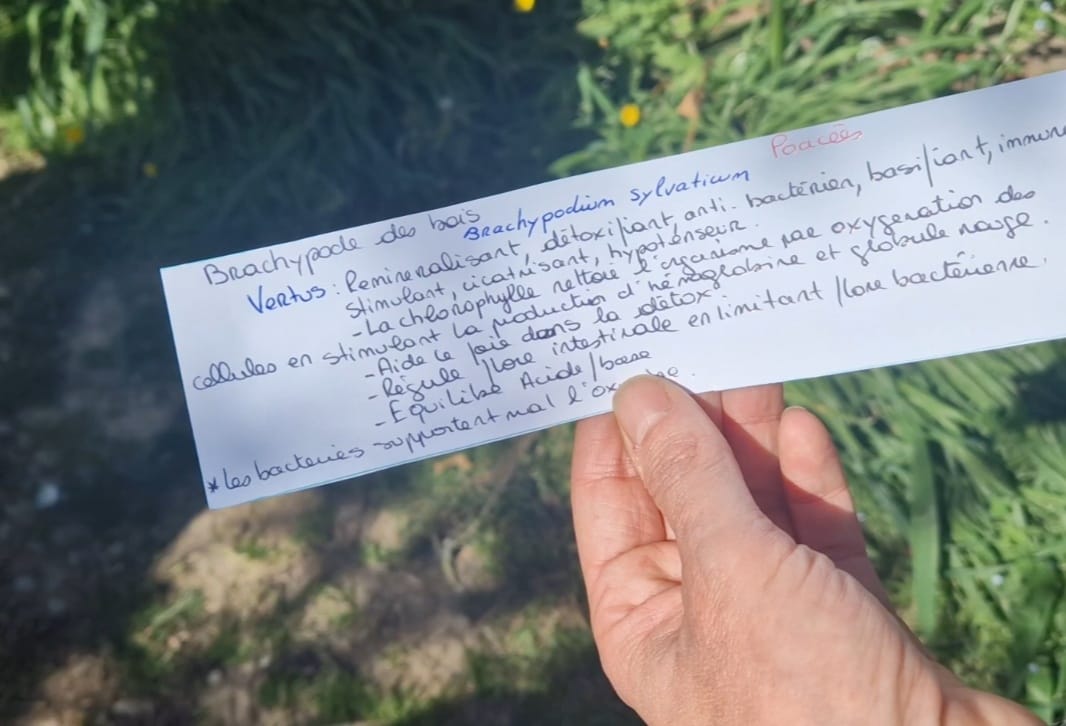 Poacées
Brachypode des bois Brachypodium sylvaticum
Vertus : Remineralisant, détoxifiant, anti-bactérien, basifiant, immuno
stimulant, cicatrisant, hypotenseur.
- La chlorophylle nettoie l'organisme par oxygenation des
cellules en stimulant la production d'hémoglobine et globule rouge.
- Aide le foie dans la détox.
- Régule flore intestinale en limitant flore bactérienne.
- Equilibre Acide/base
* Les bacteries supportent mal